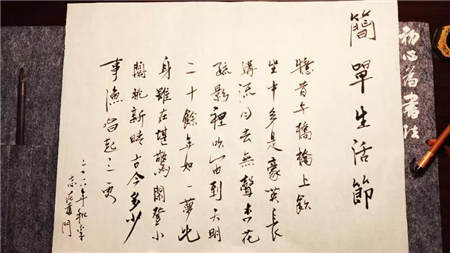 簡單生活節
憶昔午橋橋上飲
坐中多是豪英長
溝流月去無聲杏花
疏影裡吹笛到天明
二十餘年如一夢此
身雖在堪驚閒登小
閣眺新晴古今多少
事漁唱起三更
二〇一八年秋
初心